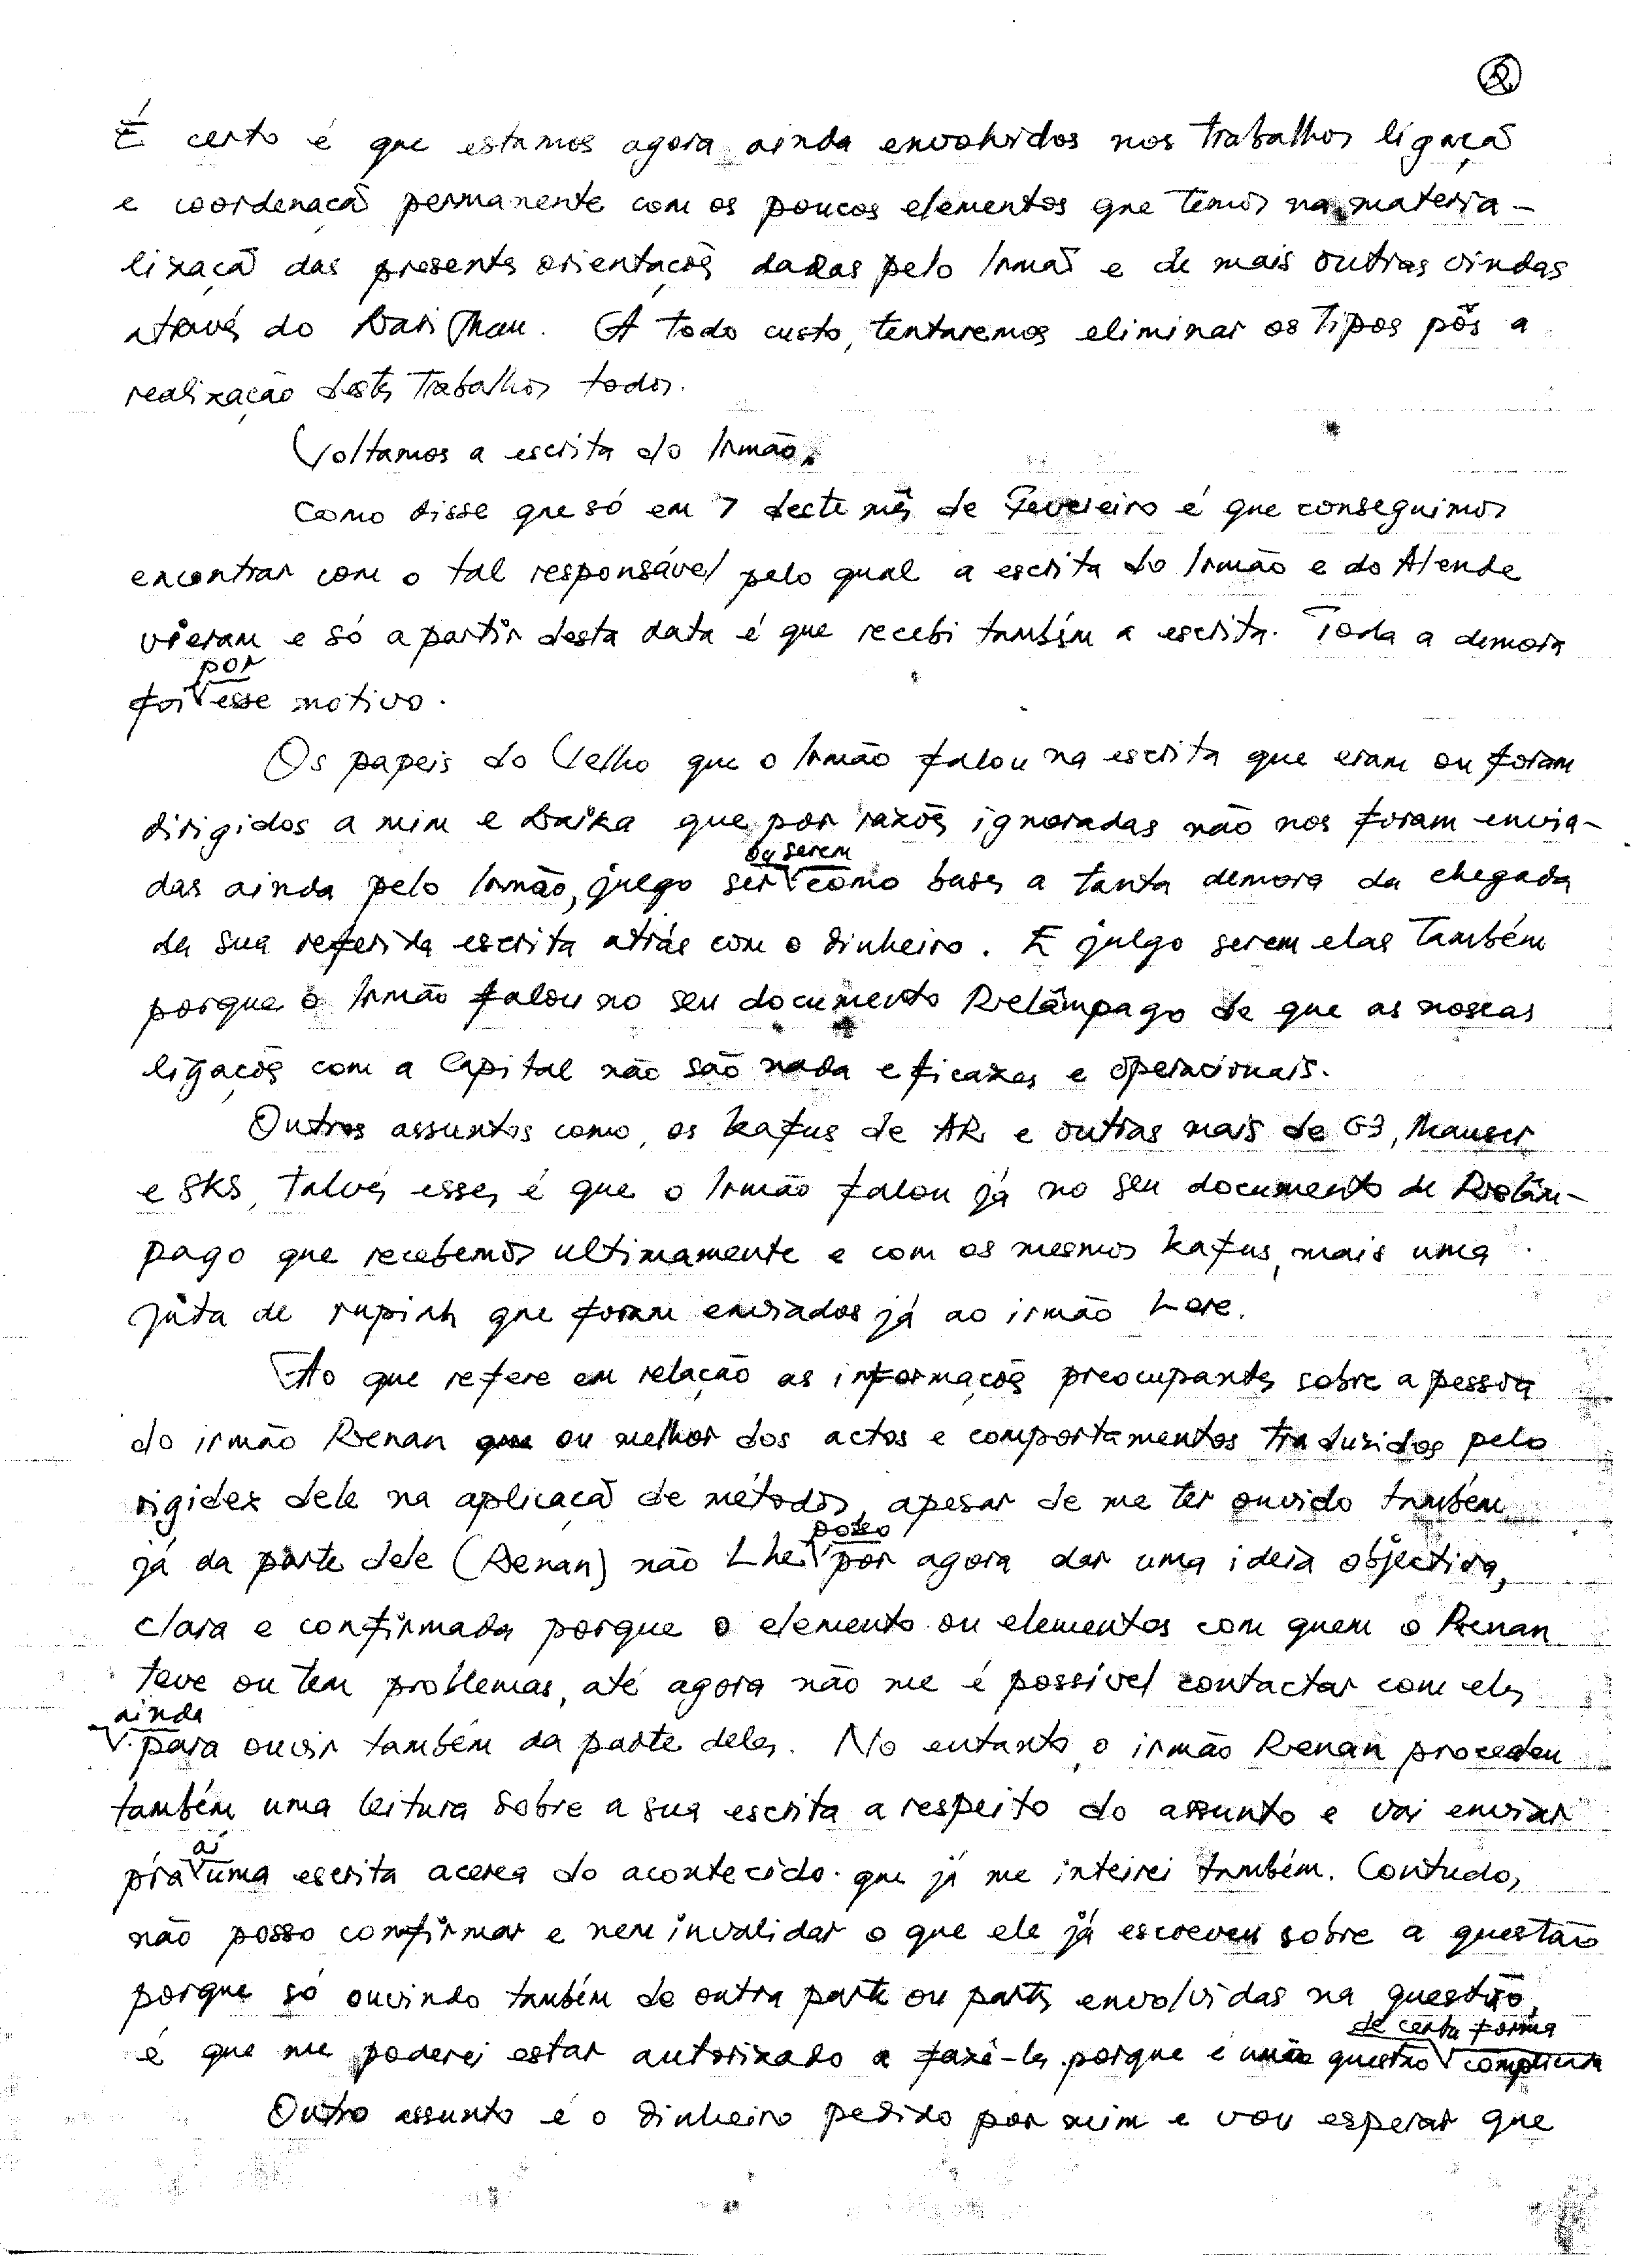 2
É certo é que estamos agora ainda envolvidos nos trabalhos ligaçã
e coordenaçã permanente com os poucos elementos que temos na materia-
lizaçã das presentes orientaçõs dadas pelo Irmã e de mais outras vindas
através do Dari Mau. A todo custo, tentaremos eliminar os tipos pôs a
realização destes trabalhos todos.
Voltamos a escrita do Irmão.
Como disse que só em 7 deste mês de Fevereiro é que conseguimos
encontrar com o tal responsável pelo qual a escrita do Irmão e do Alende
vieram e só a partir desta data é que recebi também a escrita. Toda a demora
foi por esse motivo.
Os papeis do Velho que o Irmão falou na escrita que eram ou foram
dirigidos a mim e Daika que por razões ignoradas não nos foram envia-
das ainda pelo Irmão, julgo ser ou serem como bases a tanta demora da chegada
da sua referida escrita atrás com o dinheiro. E julgo serem elas também
porque o Irmão falou no seu documento Relâmpago de que as nossas
ligaçõs com a Capital não são nada eficazes e operacionais.
Outros assuntos como, os kafus de AR. e outras mais de G3, Mauser
e SKS, talvés esses é que o Irmão falou já no seu documento de Relâm-
pago que recebemos ultimamente e com os mesmos kafus, mais uma
juta de rupiah que foram enviados já ao irmão Lere.
Ao que refere em relação as informaçõs preocupantes sobre a pessoa
do irmão Renan ou melhor dos actos e comportamentos traduzidos pelo
rigidez dele na aplicaçã de métodos, apesar de me ter ouvido também
já da parte dele (Renan) não Lhe posso por agora dar uma ideia objectiva,
clara e confirmada porque o elemento ou elementos com quem o Renan
teve ou tem problemas, até agora não me é possível contactar com eles
ainda para ouvir também da parte deles. No entanto, o irmão Renan procedeu
também uma leitura sobre a sua escrita a respeito do assunto e vai enviar
p'ra aí uma escrita acerca do acontecido que já me inteirei também. Contudo,
não posso confirmar e nem invalidar o que ele já escreveu sobre a questão
porque só ouvindo também de outra parte ou partes envolvidas na questão,
é que me poderei estar autorizado a fazê-lo porque é uma questão de certa forma complicada
Outro assunto é o dinheiro pedido por mim e vou esperar que